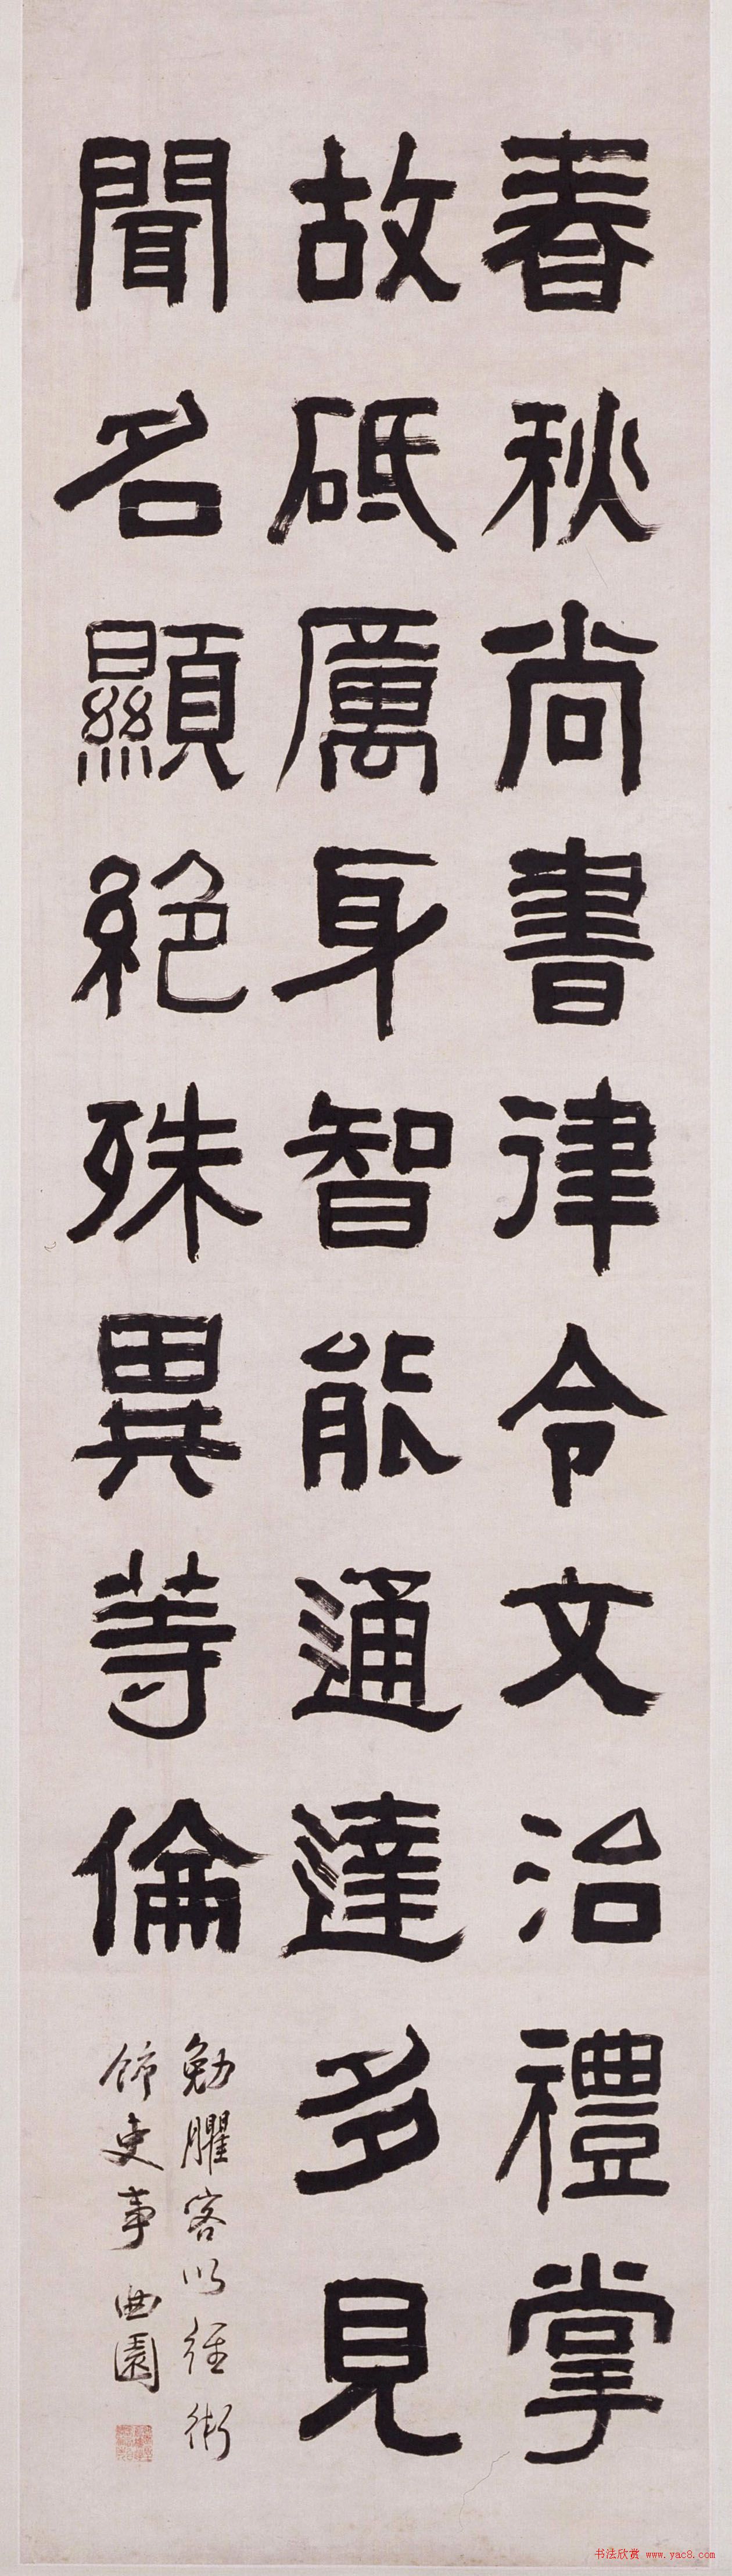 春秋尚書律令文治禮掌
故砥厲身智能通達多見
聞名顯絶殊異等倫
勉臞客以經術
飾吏事 曲園
书法欣赏 www.yac8.com